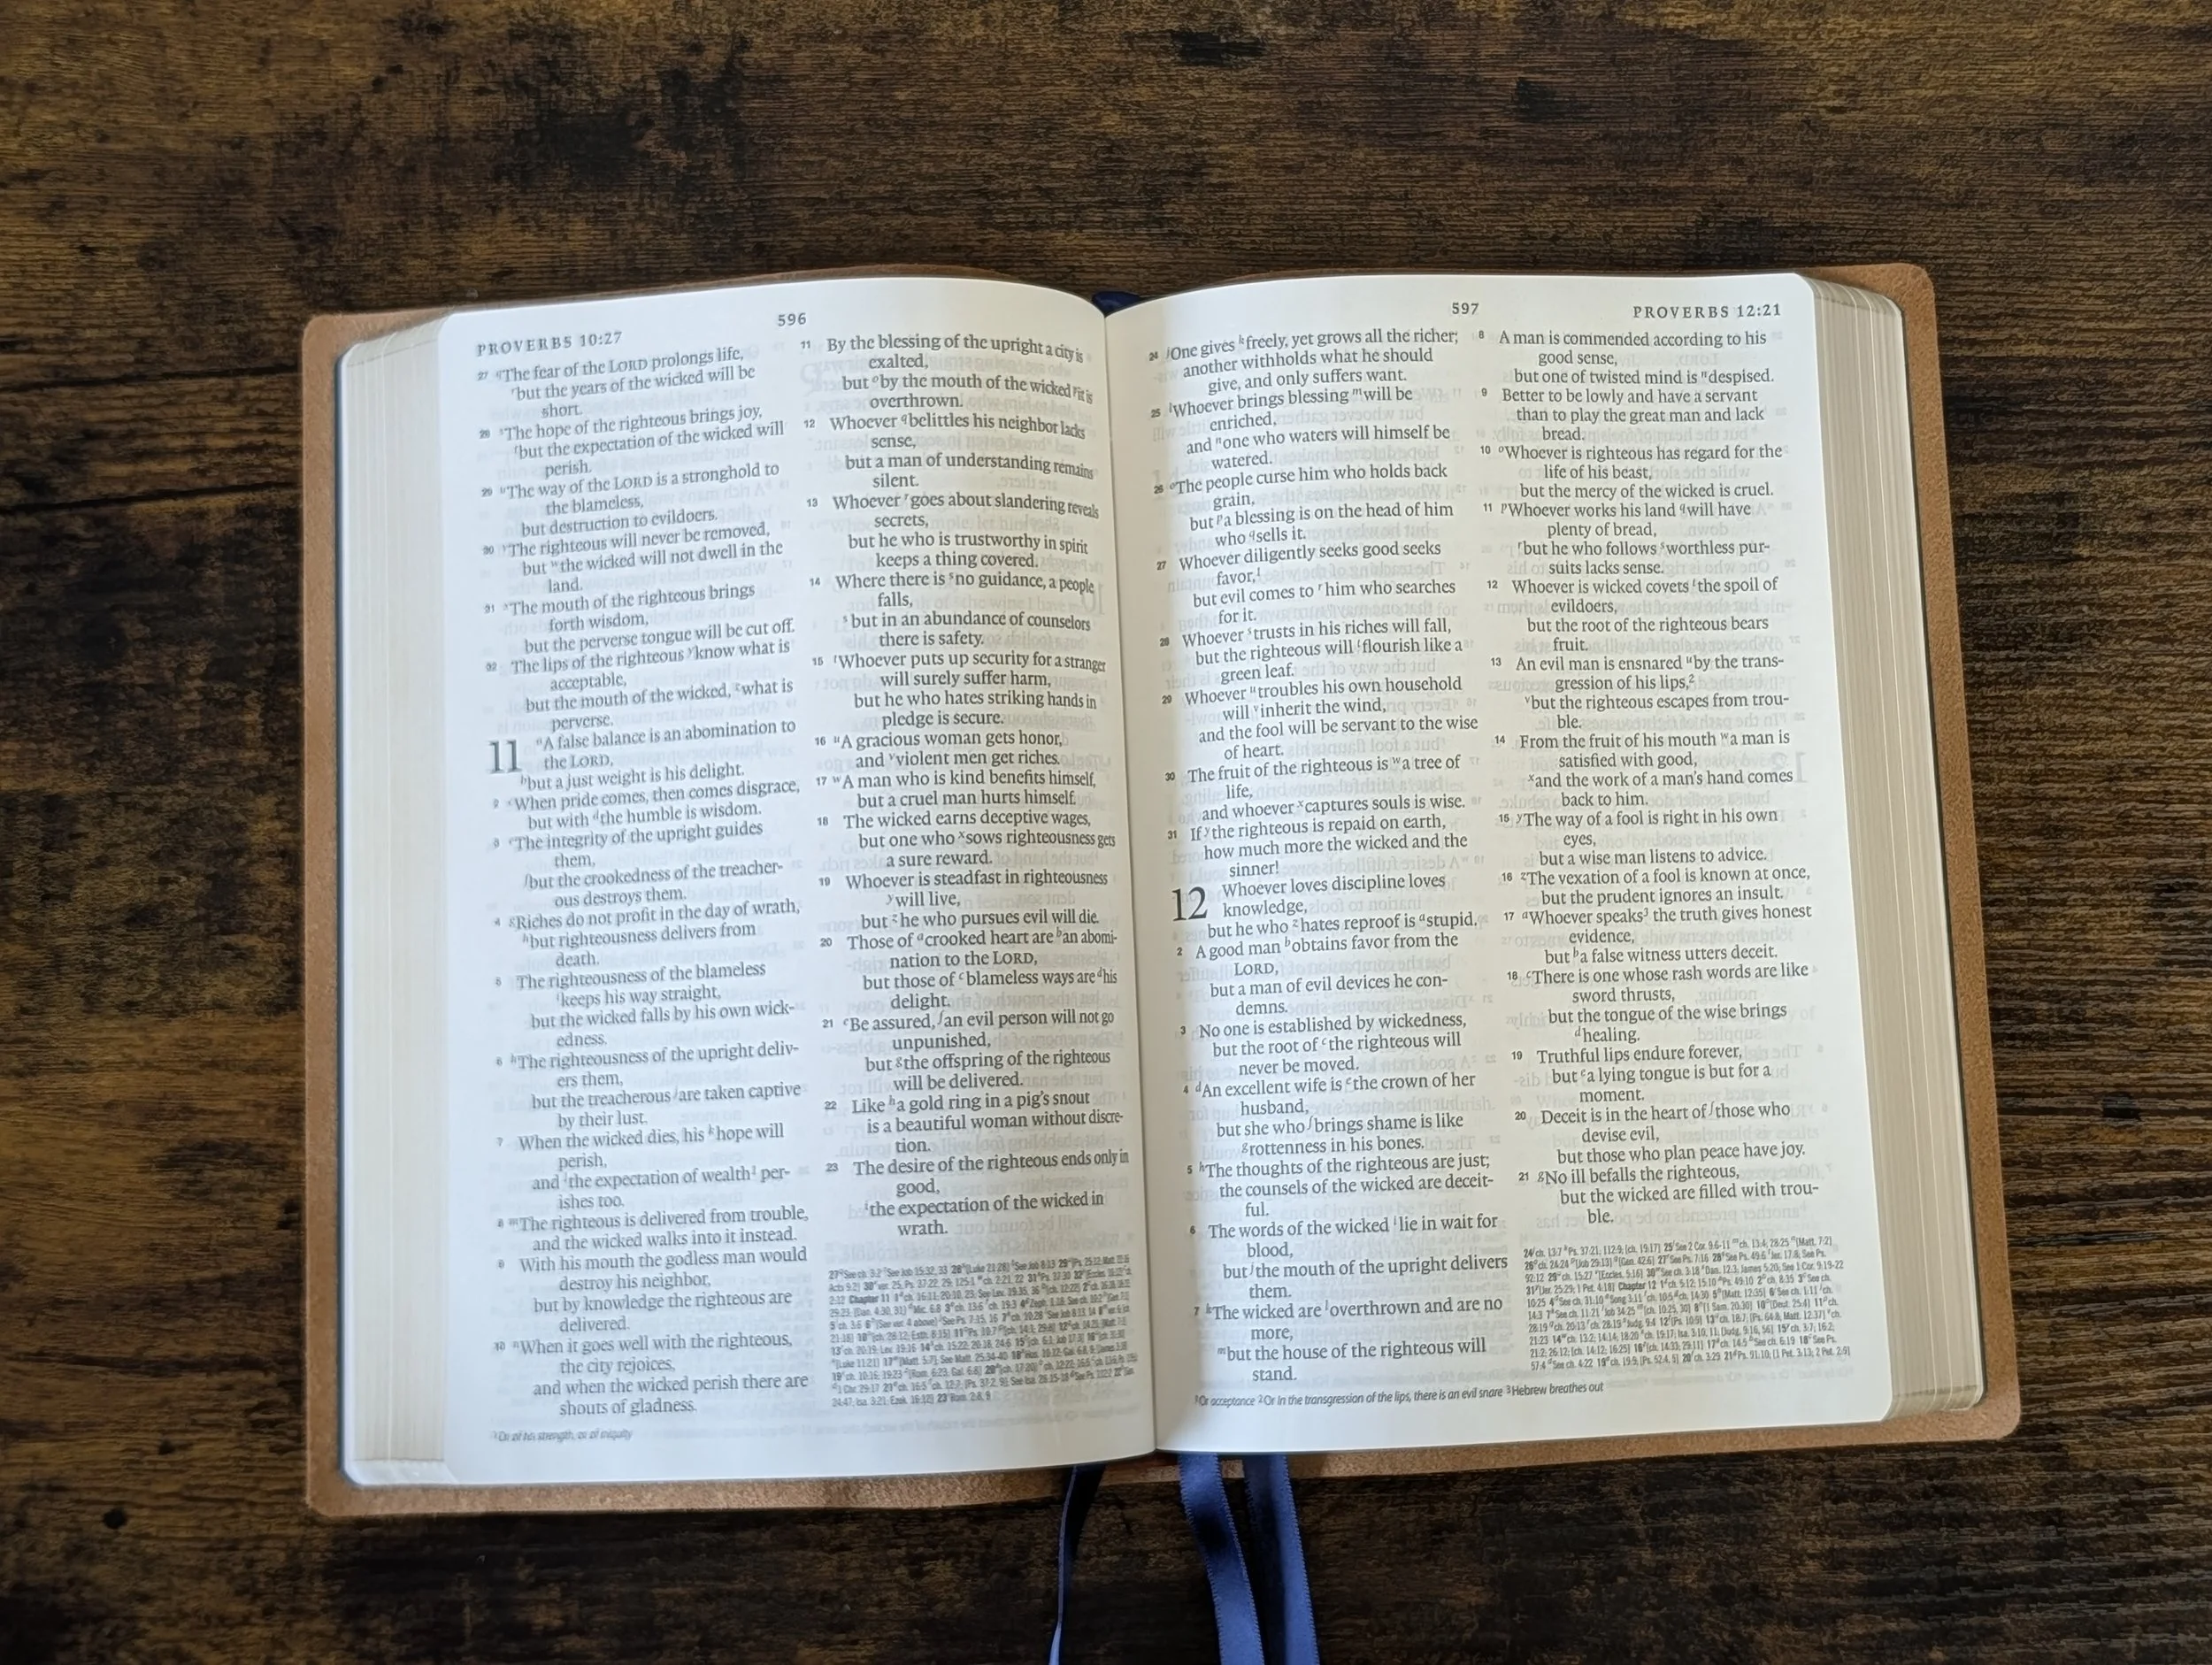 PROVERBS 10:27
596
27 The fear of the LORD prolongs life,
but the years of the wicked will be
short.
28 The hope of the righteous brings joy,
but the expectation of the wicked will
perish.
29 The way of the LORD is a stronghold to
the blameless,
but destruction to evildoers.
30 The righteous will never be removed,
but the wicked will not dwell in the
land.
31 The mouth of the righteous brings
forth wisdom,
but the perverse tongue will be cut off.
32 The lips of the righteous know what is
acceptable,
but the mouth of the wicked, what is
perverse.
11 A false balance is an abomination to
the LORD,
but a just weight is his delight.
2 When pride comes, then comes disgrace,
but with the humble is wisdom.
3 The integrity of the upright guides
them,
but the crookedness of the treacher-
ous destroys them.
4 Riches do not profit in the day of wrath,
but righteousness delivers from
death.
5 The righteousness of the blameless
keeps his way straight,
but the wicked falls by his own wick-
edness.
6 The righteousness of the upright deliv-
ers them,
but the treacherous are taken captive
by their lust.
7 When the wicked dies, his hope will
perish,
and the expectation of wealth per-
ishes too.
8 The righteous is delivered from trouble,
and the wicked walks into it instead.
9 With his mouth the godless man would
destroy his neighbor,
but by knowledge the righteous are
delivered.
10 When it goes well with the righteous,
the city rejoices,
and when the wicked perish there are
shouts of gladness.
11 By the blessing of the upright a city is
exalted,
but by the mouth of the wicked it is
overthrown.
12 Whoever belittles his neighbor lacks
sense,
but a man of understanding remains
silent.
13 Whoever goes about slandering reveals
secrets,
but he who is trustworthy in spirit
keeps a thing covered.
14 Where there is no guidance, a people
falls,
but in an abundance of counselors
there is safety.
15 Whoever puts up security for a stranger
will surely suffer harm,
but he who hates striking hands in
pledge is secure.
16 A gracious woman gets honor,
and violent men get riches.
17 A man who is kind benefits himself,
but a cruel man hurts himself.
18 The wicked earns deceptive wages,
but one who sows righteousness gets
a sure reward.
19 Whoever is steadfast in righteousness
will live,
but he who pursues evil will die.
20 Those of crooked heart are an abomi-
nation to the LORD,
but those of blameless ways are his
delight.
21 Be assured, an evil person will not go
unpunished,
but the offspring of the righteous
will be delivered.
22 Like a gold ring in a pig's snout
is a beautiful woman without discre-
tion.
23 The desire of the righteous ends only in
good,
the expectation of the wicked in
wrath.
1 Or of his strength, or of iniquity
597
PROVERBS 12:21
24 One gives freely, yet grows all the richer;
another withholds what he should
give, and only suffers want.
25 Whoever brings blessing will be
enriched,
and one who waters will himself be
watered.
26 The people curse him who holds back
grain,
but a blessing is on the head of him
who sells it.
27 Whoever diligently seeks good seeks
favor,1
but evil comes to him who searches
for it.
28 Whoever trusts in his riches will fall,
but the righteous will flourish like a
green leaf.
29 Whoever troubles his own household
will inherit the wind,
and the fool will be servant to the wise
of heart.
30 The fruit of the righteous is a tree of
life,
and whoever captures souls is wise.
31 If the righteous is repaid on earth,
how much more the wicked and the
sinner!
12 Whoever loves discipline loves
knowledge,
but he who hates reproof is stupid.
2 A good man obtains favor from the
LORD,
but a man of evil devices he con-
demns.
3 No one is established by wickedness,
but the root of the righteous will
never be moved.
4 An excellent wife is the crown of her
husband,
but she who brings shame is like
rottenness in his bones.
5 The thoughts of the righteous are just;
the counsels of the wicked are deceit-
ful.
6 The words of the wicked lie in wait for
blood,
but the mouth of the upright delivers
them.
7 The wicked are overthrown and are no
more,
but the house of the righteous will
stand.
8 A man is commended according to his
good sense,
but one of twisted mind is despised.
9 Better to be lowly and have a servant
than to play the great man and lack
bread.
10 Whoever is righteous has regard for the
life of his beast,
but the mercy of the wicked is cruel.
11 Whoever works his land will have
plenty of bread,
but he who follows worthless pur-
suits lacks sense.
12 Whoever is wicked covets the spoil of
evildoers,
but the root of the righteous bears
fruit.
13 An evil man is ensnared by the trans-
gression of his lips,2
but the righteous escapes from trou-
ble.
14 From the fruit of his mouth a man is
satisfied with good,
and the work of a man's hand comes
back to him.
15 The way of a fool is right in his own
eyes,
but a wise man listens to advice.
16 The vexation of a fool is known at once,
but the prudent ignores an insult.
17 Whoever speaks3 the truth gives honest
evidence,
but a false witness utters deceit.
18 There is one whose rash words are like
sword thrusts,
but the tongue of the wise brings
healing.
19 Truthful lips endure forever,
but a lying tongue is but for a
moment.
20 Deceit is in the heart of those who
devise evil,
but those who plan peace have joy.
21 No ill befalls the righteous,
but the wicked are filled with trou-
ble.
1 Or acceptance 2 Or In the transgression of the lips, there is an evil snare 3 Hebrew breathes out